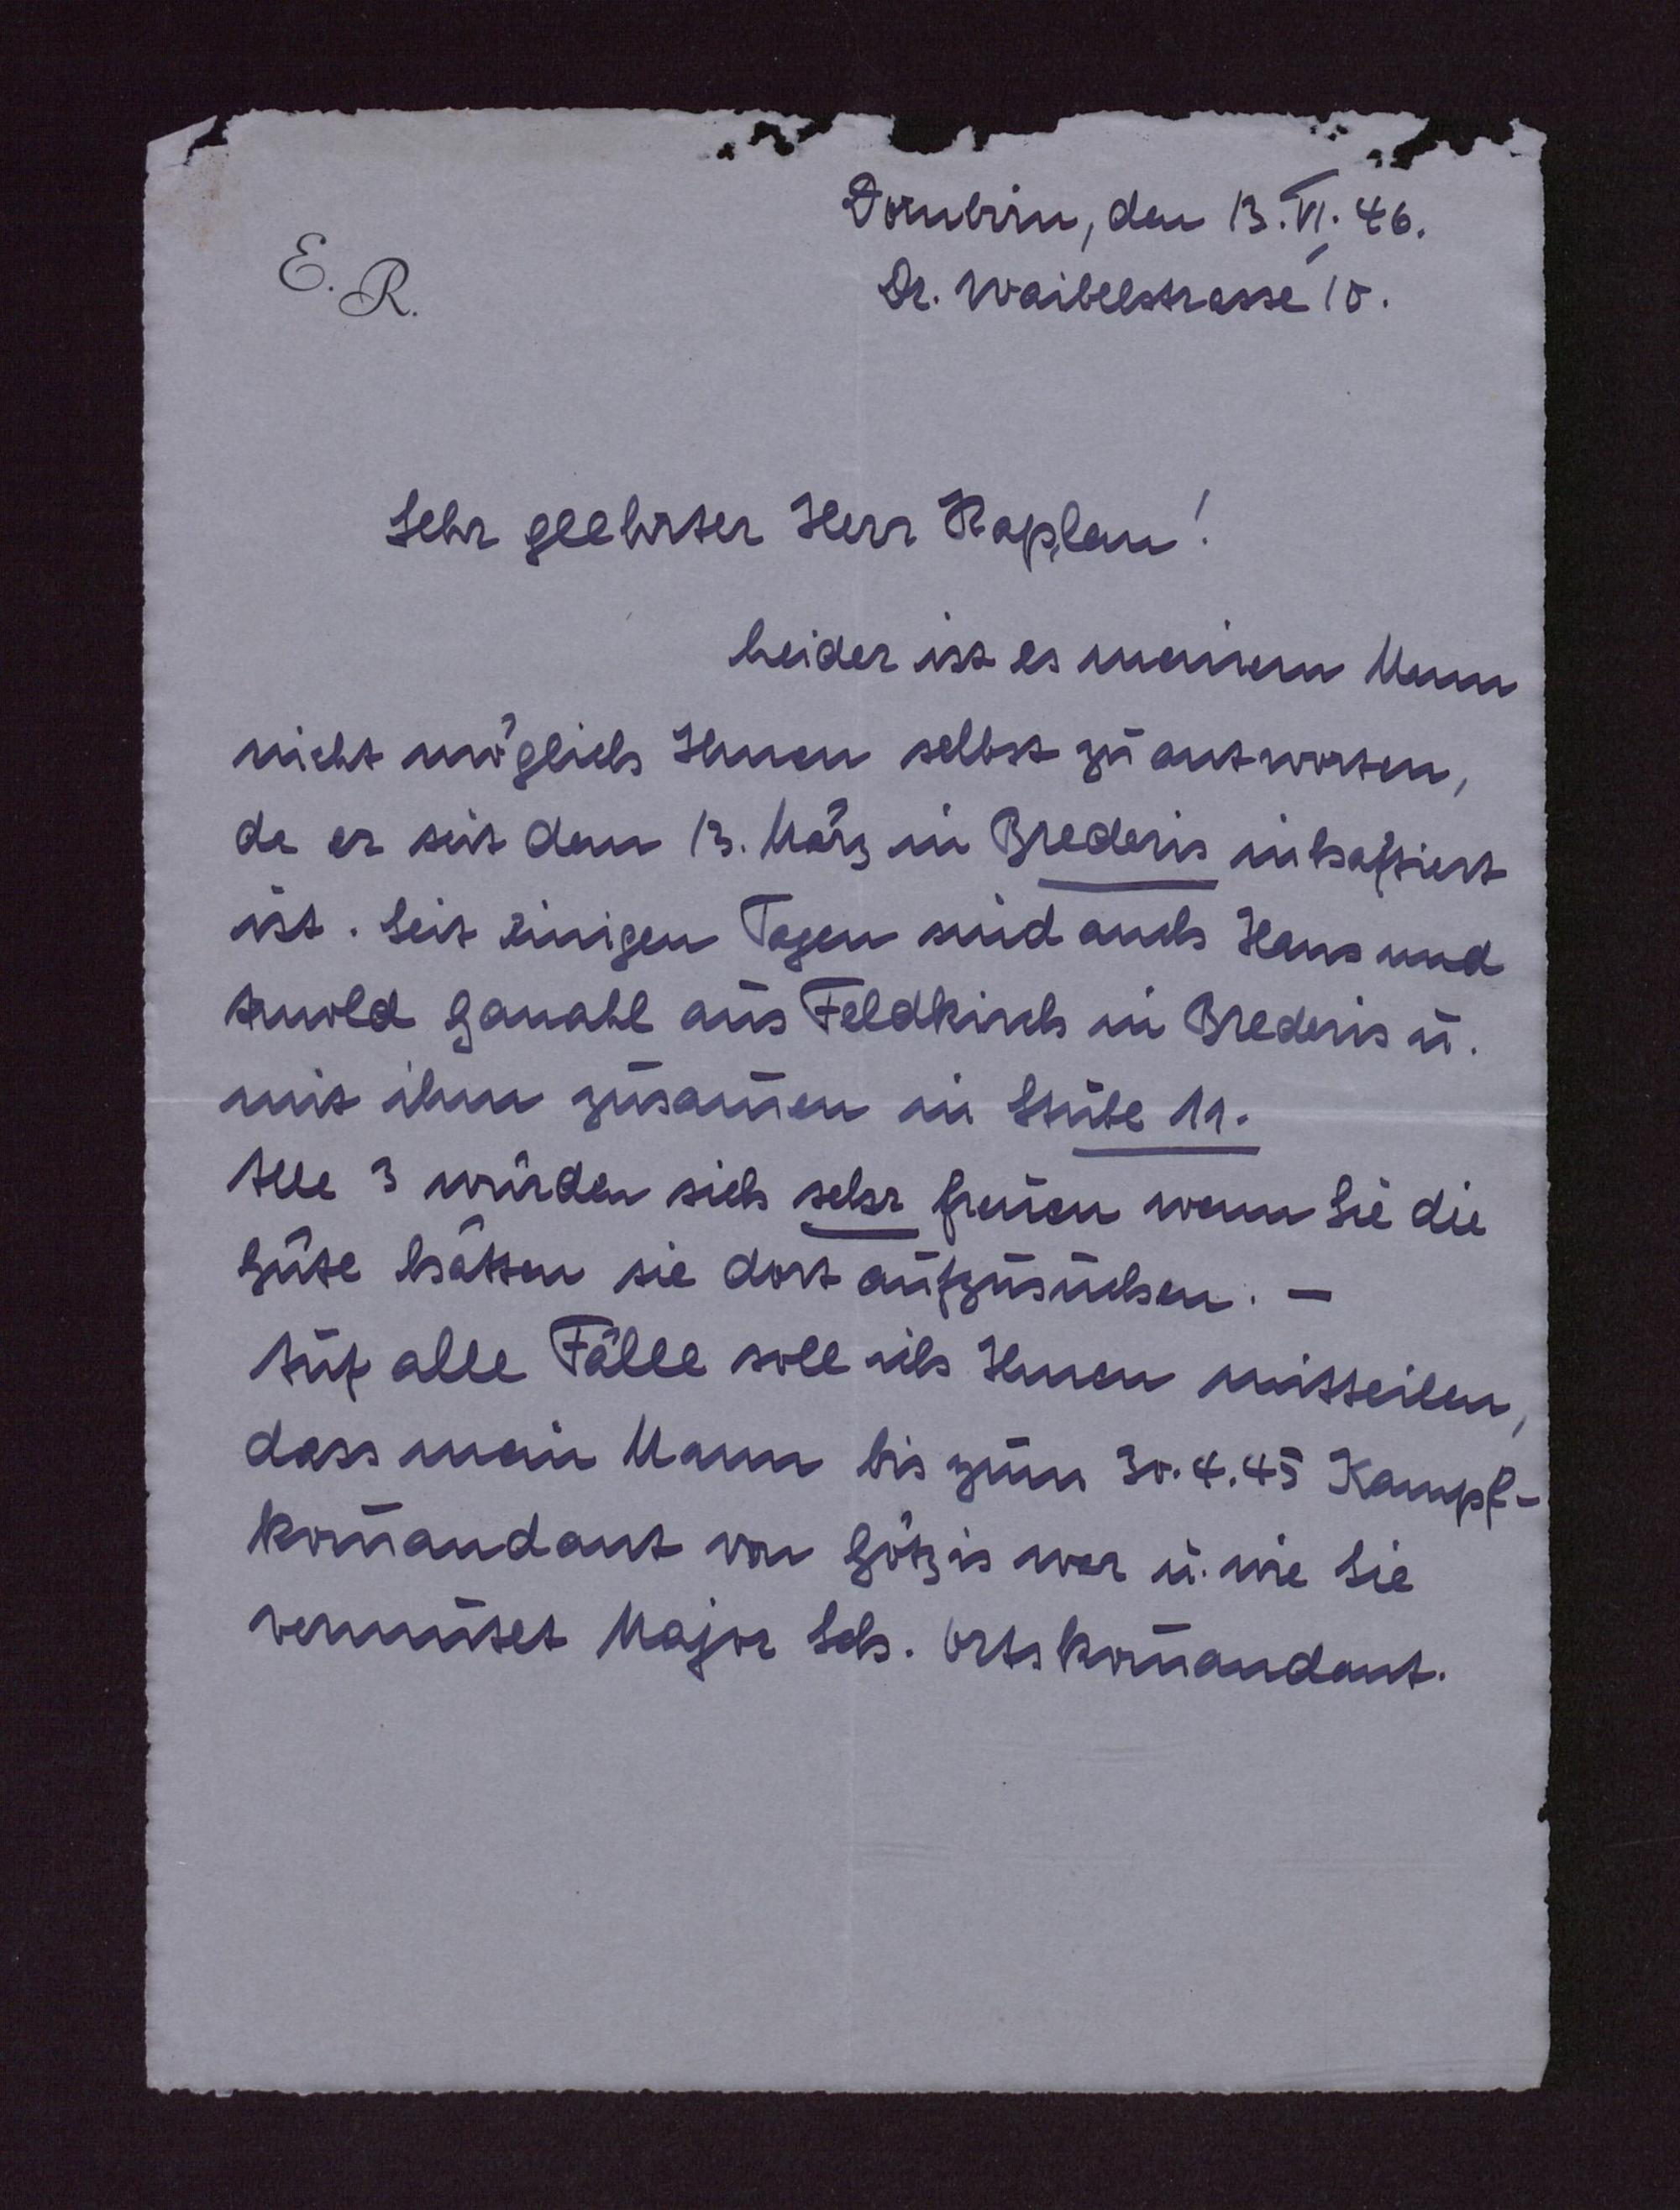 E. R.
Dornbirn, den 13. VI. 46.
Dr. Waibelstrasse 10.
Sehr geehrter Herr Kaplan!
Leider ist es meinem Mann
nicht möglich Ihnen selbst zu antworten,
da er seit dem 13. März in Brederis inhaftiert
ist. Seit einigen Tagen sind auch Hans und
Arnold Ganahl aus Feldkirch in Brederis u.
mit ihm zusam̅en in Stube 11.
Alle 3 würden sich sehr freuen wenn Sie die
Güte hätten sie dort aufzusuchen. –
Auf alle Fälle soll ich Ihnen mitteilen,
dass mein Mann bis zum 30.4.45 Kampf-
kom̅andant von Götzis war u. wie Sie
vermutet Major Sch. Ortskom̅andant.